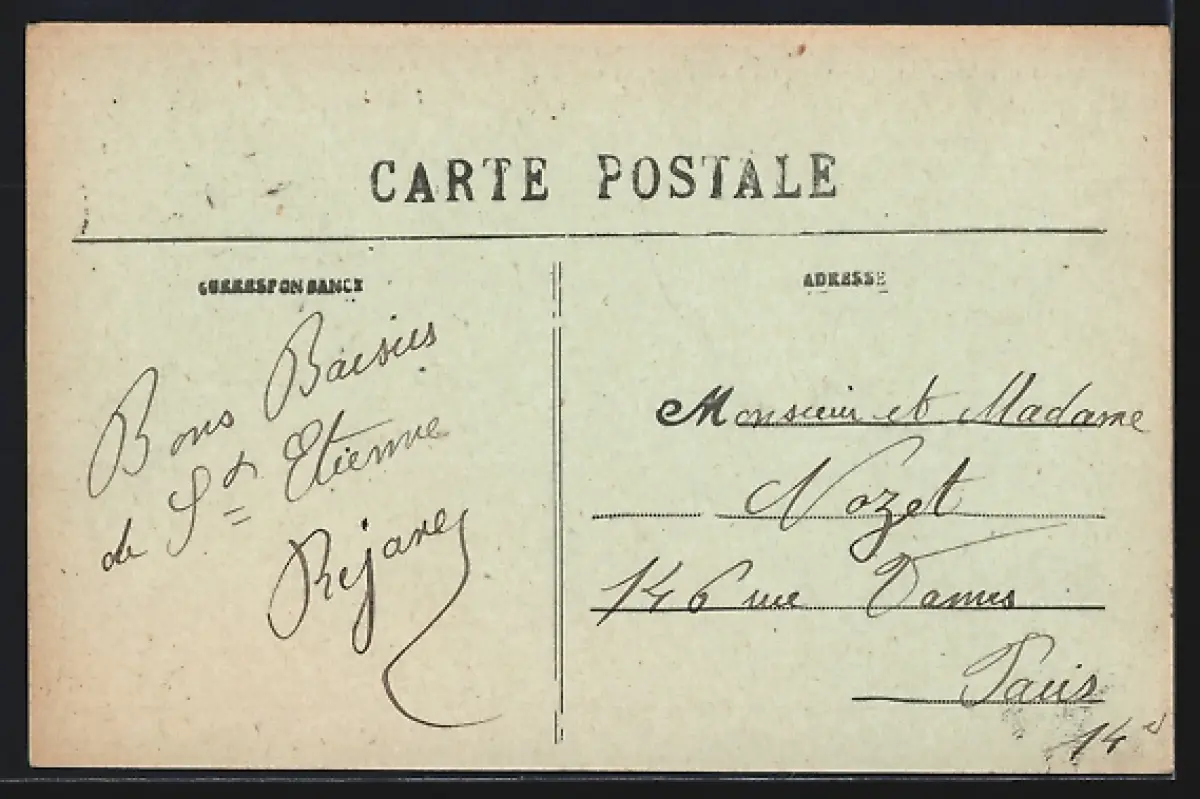 CARTE POSTALE
CORRESPONDANCE
Bons Baisers
de St Etienne
Rejane
ADRESSE
Monsieur et Madame
Nozet
146 rue Dames
Paris
14e